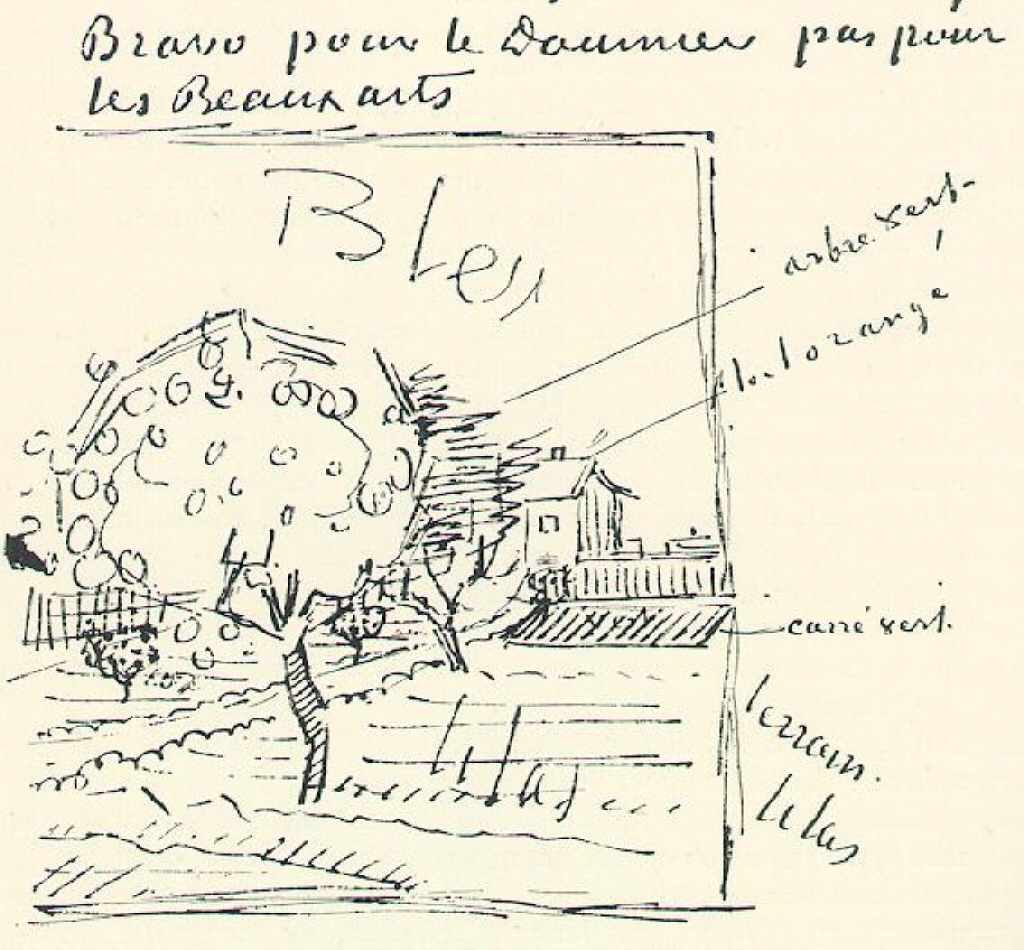 Bravo pour le Daumier pas pour
les Beaux arts
Bleu
arbre vert
toit orangé
carré vert.
lilas
terrain.
lilas